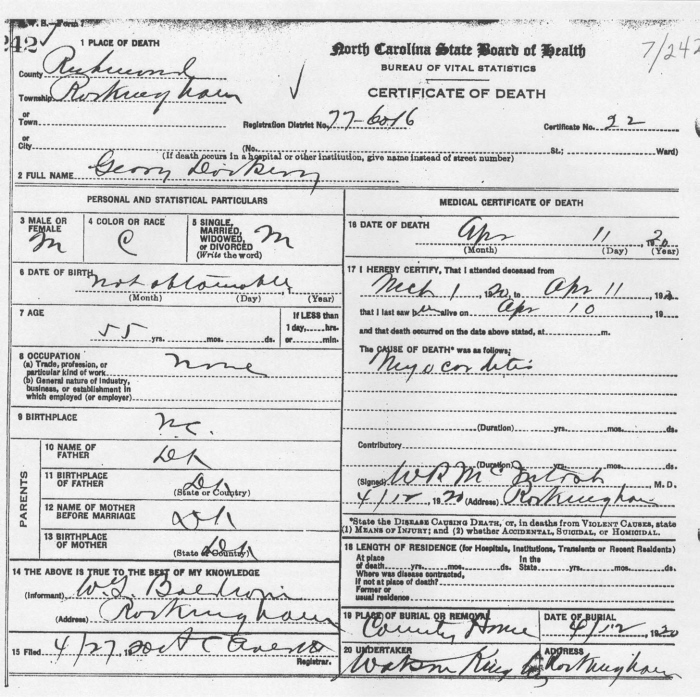 W. B.—Form 7
242
1 PLACE OF DEATH
County Richmond
Township Rockingham
or
Town
or
City
North Carolina State Board of Health
BUREAU OF VITAL STATISTICS
CERTIFICATE OF DEATH
7/242
Registration District No. 77-6016 Certificate No. 22
(No. St.; Ward)
(If death occurs in a hospital or other institution, give name instead of street number)
2 FULL NAME Dockery
PERSONAL AND STATISTICAL PARTICULARS
3 MALE OR FEMALE M
4 COLOR OR RACE C
5 SINGLE, MARRIED, WIDOWED, or DIVORCED (Write the word) M
6 DATE OF BIRTH not obtainable
(Month) (Day) (Year)
7 AGE
55 yrs. mos. ds.
If LESS than
1 day, hrs.
or min.
8 OCCUPATION
(a) Trade, profession, or
particular kind of work none
(b) General nature of industry,
business, or establishment in
which employed (or employer)
9 BIRTHPLACE
N.C.
PARENTS
10 NAME OF FATHER DK
11 BIRTHPLACE OF FATHER DK
(State or Country)
12 NAME OF MOTHER BEFORE MARRIAGE DK
13 BIRTHPLACE OF MOTHER DK
(State or Country)
14 THE ABOVE IS TRUE TO THE BEST OF MY KNOWLEDGE
(Informant) W.
(Address) Rockingham
15 Filed 4/27, 1920 Registrar.
MEDICAL CERTIFICATE OF DEATH
16 DATE OF DEATH
Apr 11, 1920
(Month) (Day) (Year)
17 I HEREBY CERTIFY, That I attended deceased from
Mch 1 1920 to Apr 11 192
that I last saw h alive on Apr 10 19
and that death occurred on the date above stated, at m.
The CAUSE OF DEATH* was as follows:
Myocarditis
(Duration) yrs. mos. ds.
Contributory
(Duration) yrs. mos. ds.
(Signed) McIntosh M. D.
4/12 1920 (Address) Rockingham
*State the DISEASE CAUSING DEATH, or, in deaths from VIOLENT CAUSES, state
(1) MEANS OF INJURY; and (2) whether ACCIDENTAL, SUICIDAL, or HOMICIDAL.
18 LENGTH OF RESIDENCE (for Hospitals, Institutions, Transients or Recent Residents)
At place of death yrs. mos. ds. In the State yrs. mos. ds.
Where was disease contracted,
if not at place of death?
Former or
usual residence
19 PLACE OF BURIAL OR REMOVAL
County Home
DATE OF BURIAL
4/12 1920
20 UNDERTAKER
Watson King Co
ADDRESS
Rockingham